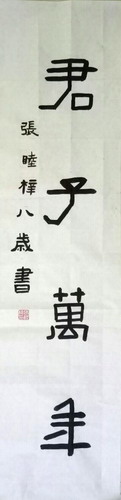 君子萬年
張睦樺八歲書